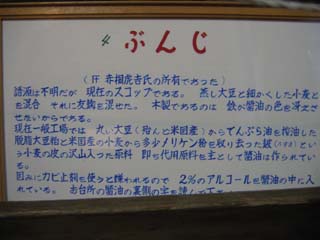 4 ぶんじ
(仔 赤襧虎吉氏の所有であった)
語源は不明だが 現在のスコップである。 蒸し大豆と細かくした小麦と
を混合 それに友麹を混ぜた。 木製であるのは 鉄が醤油の色を冴えさ
せないからである。
現在一般工場では 丸い大豆(殆んど米国産)からでんぷら油を搾油した
脱脂大豆粕と米国産の小麦から多少メリケン粉を取り去った麸(フスマ)とい
う小麦の皮の沢山入った原料 即ち代用原料を主として醤油は作られてい
る。
因みにカビ止剤を使うと嫌われるので 2%のアルコールを醤油の中に入
れている。 お台所の醤油の裏側の字を読んで下